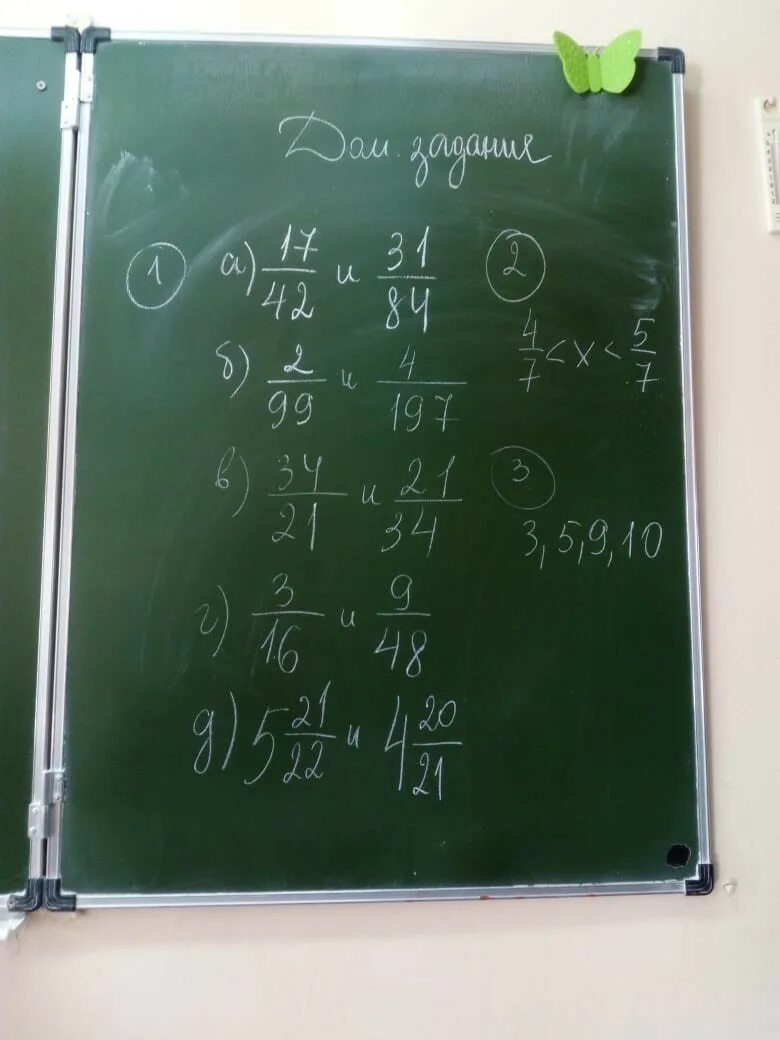 Дом. задания
1
а) 17/42 и 31/84
б) 2/99 и 4/197
в) 34/21 и 21/34
г) 3/16 и 9/48
д) 5 21/22 и 4 20/21
2
4/7 < x < 5/7
3
3, 5, 9, 10